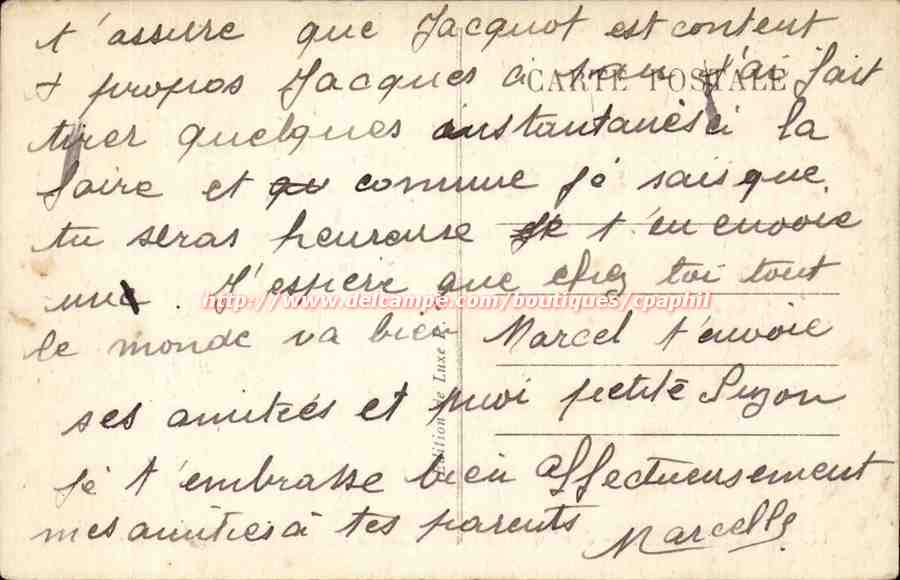 t'assure que Jacquot est content
+ propos Jacques a j'ai fait
CARTE POSTALE
tirer quelques instantanés à la
foire et comme je sais que
tu seras heureuse je t'en envoie
une. J'espère que chez toi tout
http://www.delcampe.com/boutiques/cpaphil
le monde va bien Marcel t'envoie
Edition de Luxe
ses amitiés et moi petite Suzon
je t'embrasse bien affectueusement
mes amitiés à tes parents Marcelle